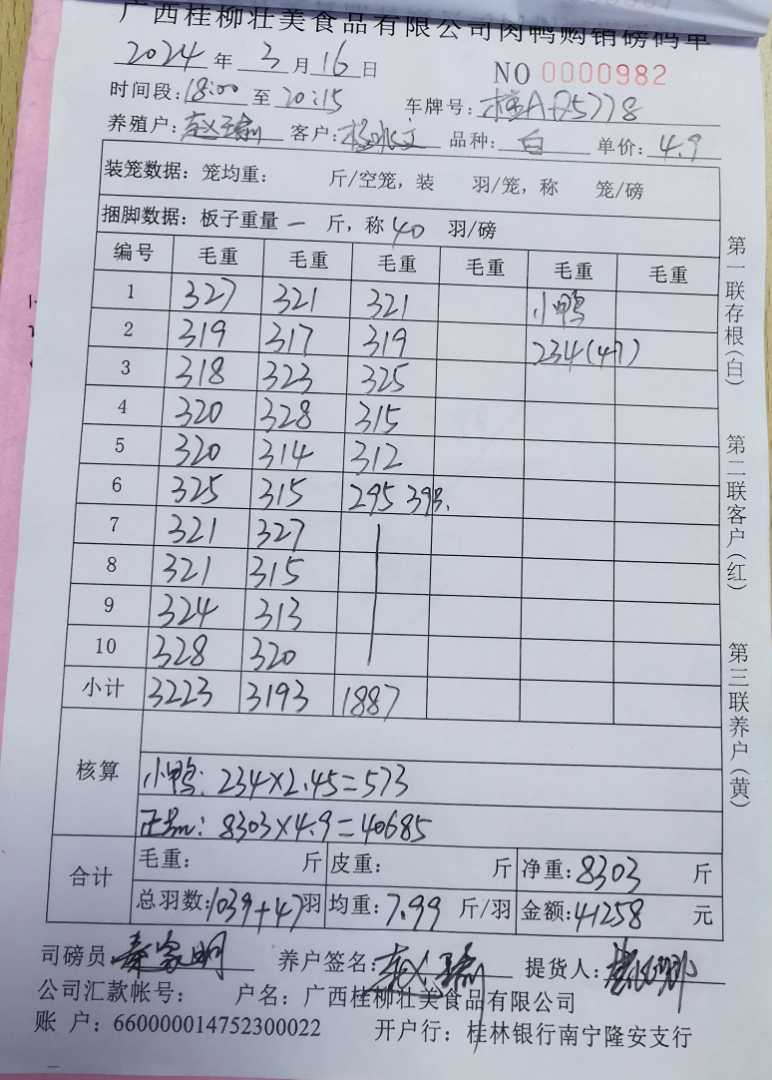 广西桂柳壮美食品有限公司肉鸭购销磅码单
2024 年 3 月 16 日 NO 0000982
时间段: 18:00 至 20:15 车牌号:
养殖户: 客户: 品种: 白 单价: 4.9
装笼数据: 笼均重: 斤/空笼, 装 羽/笼, 称 笼/磅
捆脚数据: 板子重量 一 斤, 称 40 羽/磅
编号 毛重 毛重 毛重 毛重 毛重 毛重
1 327 321 321 小鸭
2 319 317 319 234(47)
3 318 323 325
4 320 328 315
5 320 314 312
6 325 315 295 39只.
7 321 327
8 321 315
9 324 313
10 328 320
小计 3223 3193 1887
核算
小鸭: 234×2.45=573
正品: 8303×4.9=40685
合计
毛重: 斤 皮重: 斤 净重: 8303 斤
总羽数: 1039+47 羽 均重: 7.99 斤/羽 金额: 41258 元
司磅员: 秦家明 养户签名: 提货人:
公司汇款帐号: 户名: 广西桂柳壮美食品有限公司
账 户: 660000014752300022 开户行: 桂林银行南宁隆安支行
第一联存根(白)
第二联客户(红)
第三联养户(黄)